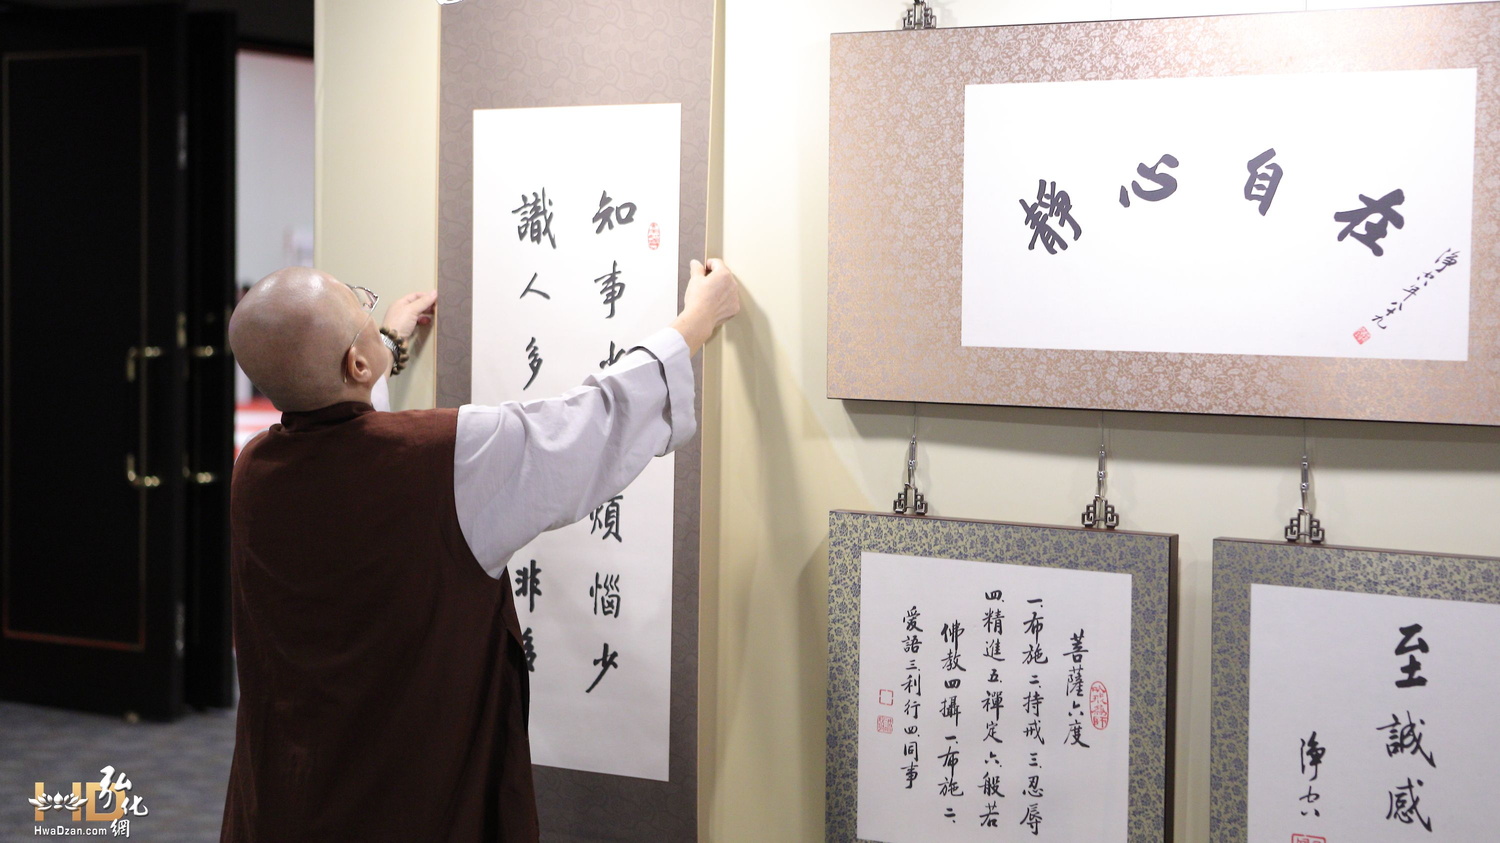 知事少煩惱少
識人多非多
靜心自在
淨空年八十九
菩薩六度
一.布施二.持戒三.忍辱
四.精進五.禪定六.般若
佛教四攝一.布施二.
愛語三.利行四.同事
至誠感
淨空
HD弘化網
HwaDzan.com